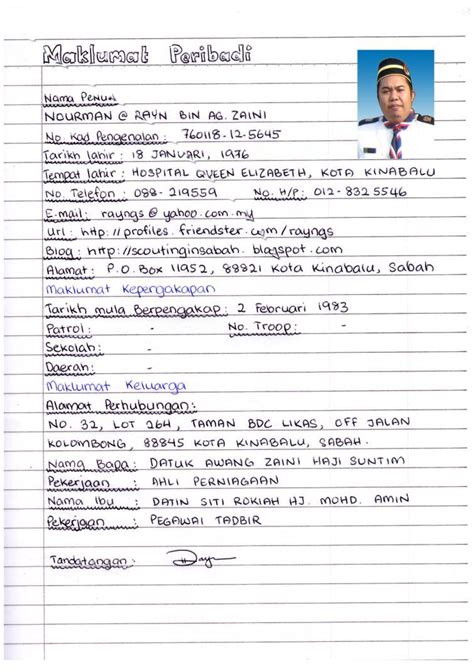 Maklumat Peribadi
Nama Penuh
NOURMAN @ RAYN BIN AG. ZAINI
No. Kad Pengenalan : 760118-12-5645
Tarikh lahir : 18 JANUARI, 1976
Tempat lahir : HOSPITAL QUEEN ELIZABETH, KOTA KINABALU
No. Telefon : 088-219559 No. H/P : 012-832 5546
E-mail : rayngs@yahoo.com.my
Url : http://profiles.friendster.com/rayngs
Blog : http://scoutinginsabah.blogspot.com
Alamat : P.O. Box 11952, 88821 Kota Kinabalu, Sabah
Maklumat Kepengakapan
Tarikh mula Berpengakap : 2 Februari 1983
Patrol : - No. Troop : -
Sekolah : -
Daerah : -
Maklumat Keluarga
Alamat Perhubungan :
NO. 32, LOT 264, TAMAN BDC LIKAS, OFF JALAN
KOLOMBONG, 88845 KOTA KINABALU, SABAH.
Nama Bapa : DATUK AWANG ZAINI HAJI SUNTIM
Pekerjaan : AHLI PERNIAGAAN
Nama Ibu : DATIN SITI ROKIAH HJ. MOHD. AMIN
Pekerjaan : PEGAWAI TADBIR
Tandatangan :